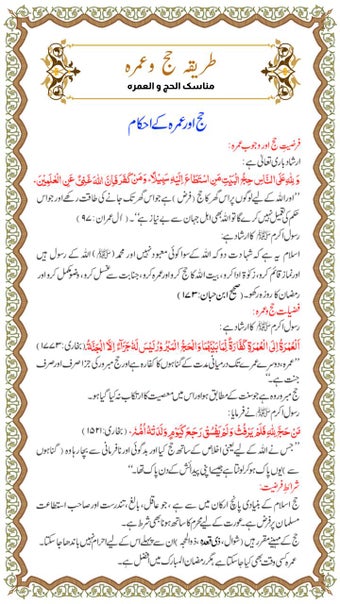 طریقہ حج و عمرہ
مناسک الحج و العمرہ
حج اور عمرہ کے احکام
فرضیتِ حج اور وجوبِ عمرہ:
ارشاد باری تعالٰی ہے:
وَلِلّٰهِ عَلَى النَّاسِ حِجُّ الْبَيْتِ مَنِ اسْتَطَاعَ اِلَيْهِ سَبِيْلًا، وَمَنْ كَفَرَ فَاِنَّ اللّٰهَ غَنِيٌّ عَنِ الْعٰلَمِيْنَ۔
”اور اللہ کے لیے لوگوں پر اس گھر کا حج (فرض) ہے جو اس گھر تک جانے کی طاقت رکھے اور جو اس
حکم کی تعمیل نہیں کرے گا تو اللہ بھی اہل جہان سے بے نیاز ہے“۔ (آل عمران: ۹۷)
رسول اکرم ﷺ کا ارشاد ہے:
اسلام یہ ہے کہ شہادت دو کہ اللہ کے سوا کوئی معبود نہیں اور محمد (ﷺ) اللہ کے رسول ہیں
اور نماز قائم کرو، زکوٰۃ ادا کرو، بیت اللہ کا حج کرو اور عمرہ کرو، جنابت سے غسل کرو، وضو مکمل کرو اور
رمضان کا روزہ رکھو۔ (صحیح ابن حبان: ۱۷۳)
فضیلتِ حج و عمرہ:
رسول اکرم ﷺ کا ارشاد ہے:
اَلْعُمْرَةُ اِلَى الْعُمْرَةِ كَفَّارَةٌ لِمَا بَيْنَهُمَا وَالْحَجُّ الْمَبْرُوْرُ لَيْسَ لَهُ جَزَاءٌ اِلَّا الْجَنَّةُ۔ (بخاری: ۱۷۷۳)
”عمرہ، دوسرے عمرے تک درمیانی مدت کے گناہوں کا کفارہ ہے اور حج مبرور کی جزا صرف اور صرف
جنت ہے۔“
حج مبرور وہ ہے جو سنت کے مطابق ہو اور اس میں معصیت کا ارتکاب نہ کیا گیا ہو۔
رسول اکرم ﷺ نے فرمایا:
مَنْ حَجَّ لِلّٰهِ فَلَمْ يَرْفُثْ وَلَمْ يَفْسُقْ رَجَعَ كَيَوْمِ وَلَدَتْهُ اُمُّهُ۔ (بخاری: ۱۵۲۱)
”جس نے اللہ کے لیے یعنی اخلاص کے ساتھ حج کیا اور بدگوئی اور نافرمانی سے بچا رہا وہ (گناہوں
سے) یوں پاک ہو کر لوٹتا ہے جیسے اپنی پیدائش کے دن پاک تھا۔“
شرائطِ فرضیت:
حج اسلام کے بنیادی پانچ ارکان میں سے ہے، جو عاقل، بالغ، تندرست اور صاحب استطاعت
مسلمان پر فرض ہے۔ عورت کے لیے محرم کا ساتھ ہونا بھی شرط ہے۔
حج کے مہینے مقرر ہیں (شوال، ذی قعدہ، ذوالحجہ) ان سے پہلے اس کے لیے احرام نہیں باندھا جا سکتا۔
عمرہ کسی وقت بھی کیا جا سکتا ہے مگر رمضان المبارک میں افضل ہے۔